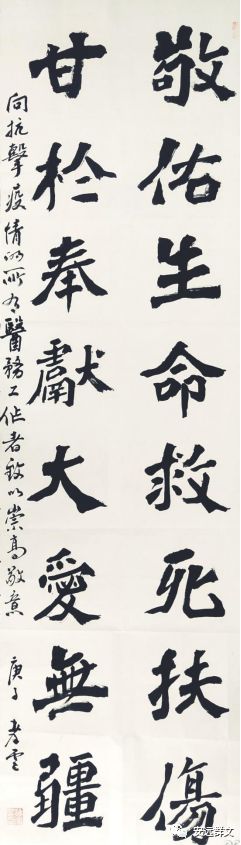 敬佑生命救死扶傷
甘於奉獻大愛無疆
向抗擊疫情的所有醫務工作者致以崇高敬意
庚子 孝雲
安远群文